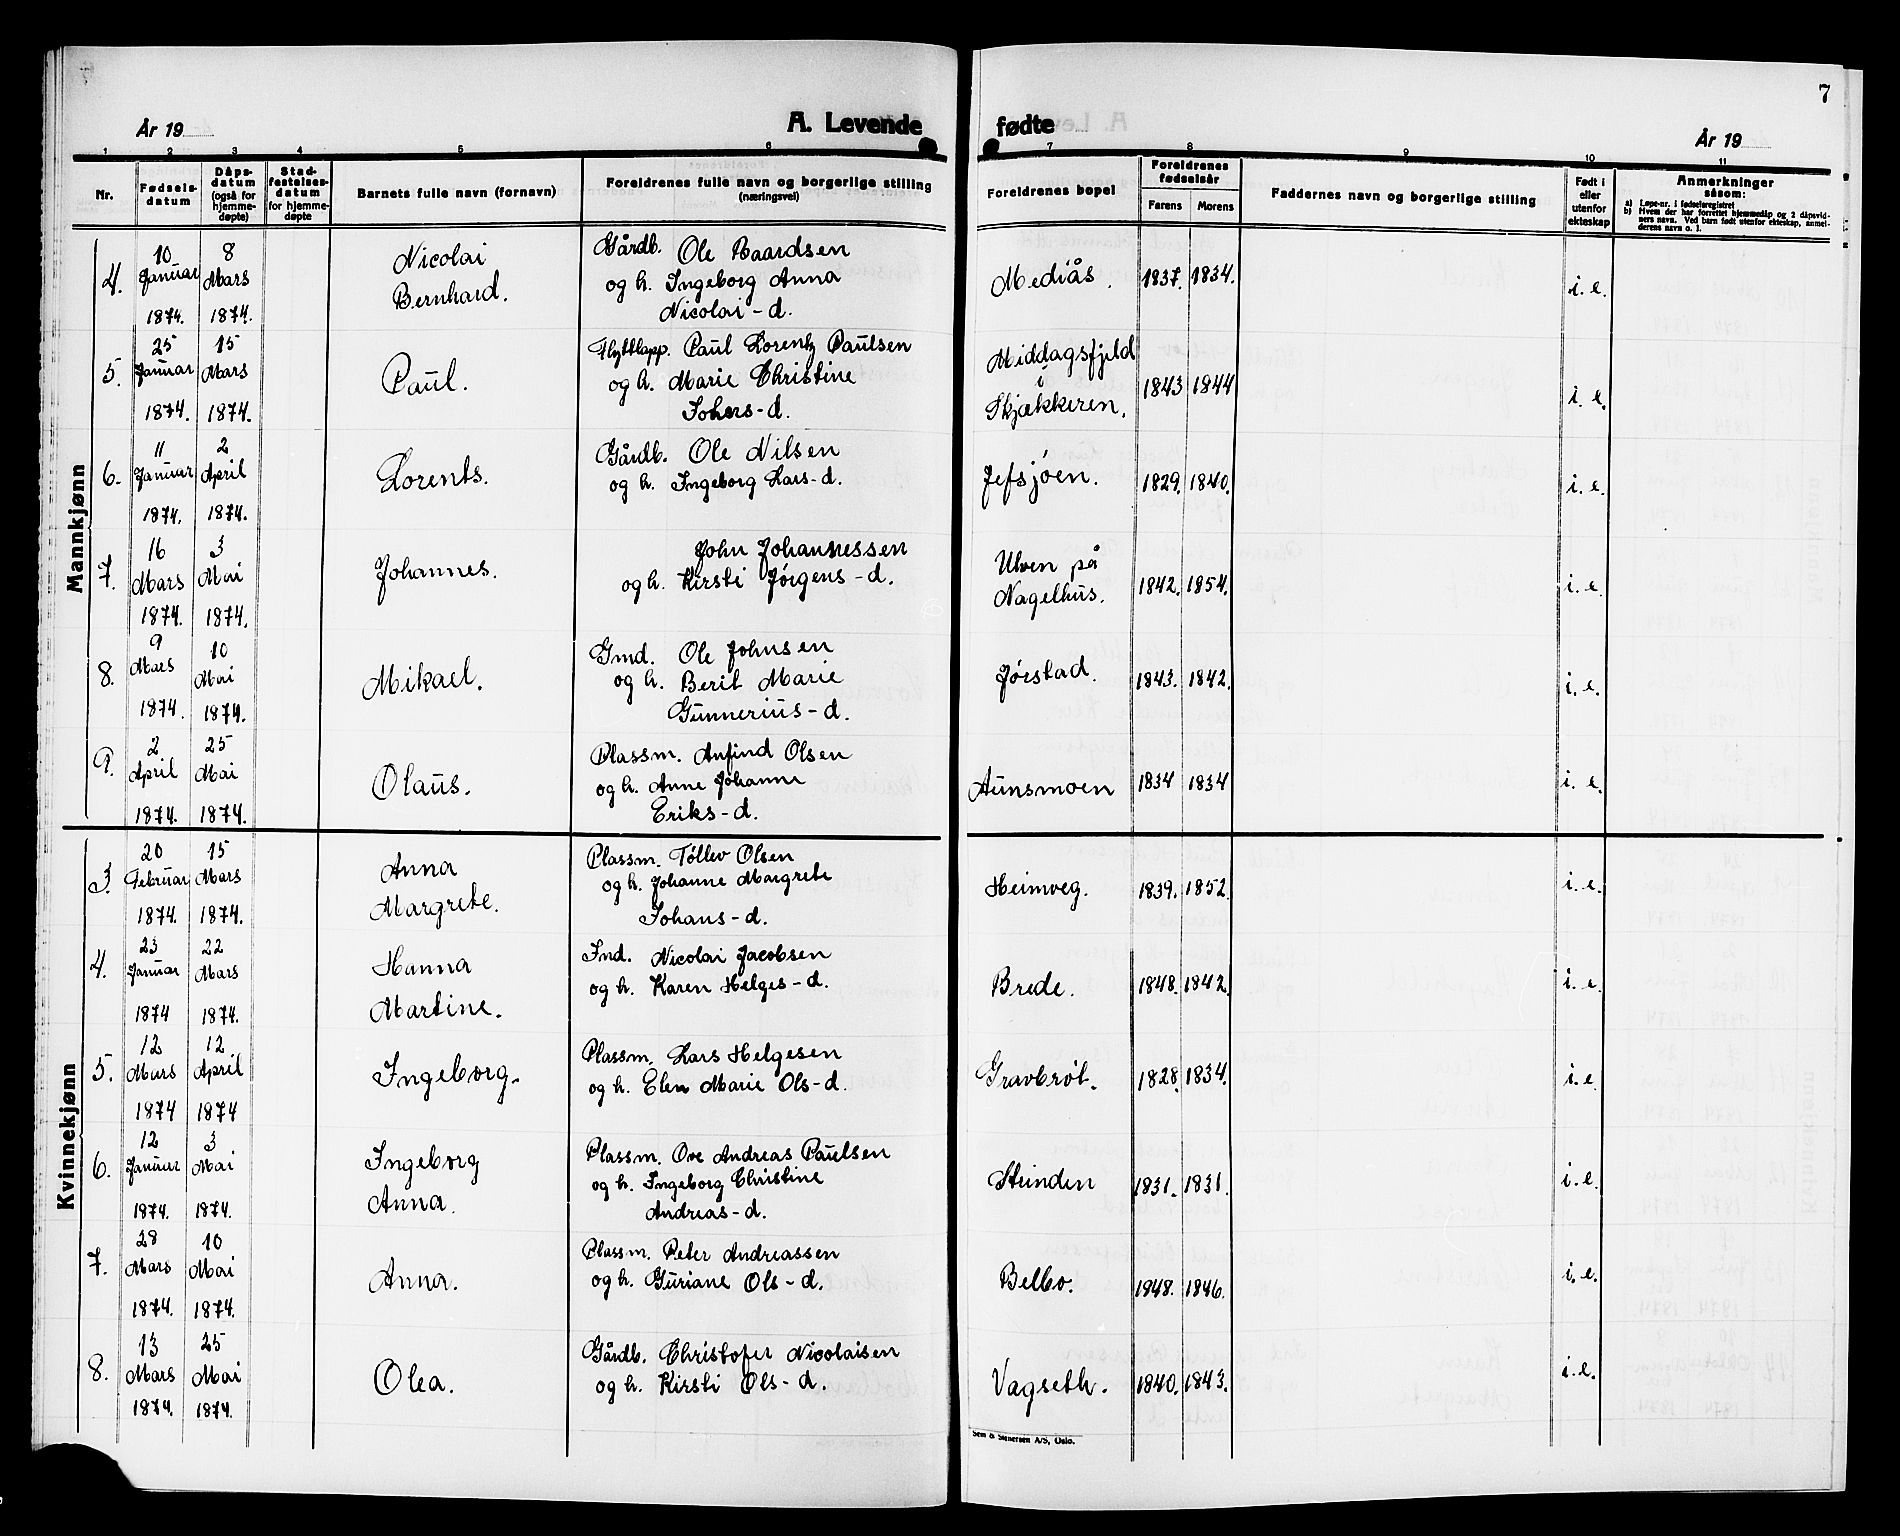 7
År 19
A. Levende
fødte
År 19
1 2 3 4 5 6 7 8 9 10 11
Nr.
Fødsels-
datum
Dåps-
datum
(også for
hjemme-
døpte)
Stad-
festelses-
datum
for hjemme-
døpte
Barnets fulle navn (fornavn)
Foreldrenes fulle navn og borgerlige stilling
(næringsvei)
Foreldrenes bopel
Foreldrenes
fødselsår
Farens Morens
Faddernes navn og borgerlige stilling
Født i
eller
utenfor
ekteskap
Anmerkninger
såsom:
a) Løpe-nr. i fødselsregistret
b) Hvem der har forrettet hjemmedåp og 2 dåpsvid-
ners navn. Ved barn født utenfor ekteskap, anmel-
derens navn o. l.
Mannkjønn
4. 10 Januar 1874. 8 Mars 1874. Nicolai Bernhard. Gårdb. Ole Baardsen
og h. Ingeborg Anna
Nicolai-d. Mediås. 1837. 1834. i. e.
5. 25 Januar 1874. 15 Mars 1874. Paul. Flyttlapp. Paul Lorentz Paulsen
og h. Marie Christine
Johers-d. Middagsfjeld
i
Skjækkeren. 1843 1844 i. e.
6. 11 Januar 1874. 2 April 1874. Lorents. Gårdb. Ole Nilsen
og h. Ingeborg Lars-d. Jefsjøen. 1829. 1840. i. e.
7. 16 Mars 1874. 3 Mai 1874. Johannes. John Johannessen
og h. Kirsti Jørgens-d. Ulven på
Nagelhus. 1842. 1854. i. e.
8. 9 Mars 1874. 10 Mai 1874. Mikael. Gmd. Ole Johnsen
og h. Berit Marie
Gunnerius-d. Jørstad. 1843. 1842. i. e.
9. 2 April 1874. 25 Mai 1874. Olaus. Plassm. Anfind Olsen
og h. Anne Johanne
Eriks-d. Aunsmoen 1834 1834 i. e.
Kvinnekjønn
3. 20 Februar 1874. 15 Mars 1874. Anna Margrete. Plassm. Tollev Olsen
og h. Johanne Margrete
Johans-d. Heimveg. 1839. 1852. i. e.
4. 23 Januar 1874 22 Mars 1874. Hanna Martine. Ind. Nicolai Jacobsen
og h. Karen Helges-d. Brede. 1848. 1842. i. e.
5. 12 Mars 1874 12 April 1874 Ingeborg. Plassm. Lars Helgesen
og h. Elen Marie Ols-d. Gravbrøt. 1828. 1834. i. e.
6. 12 Januar 1874. 3 Mai 1874. Ingeborg Anna. Plassm. Ove Andreas Paulsen
og h. Ingeborg Christine
Andreas-d. Strinden 1831. 1831. i. e.
7. 28 Mars 1874. 10 Mai 1874. Anna. Plassm. Peter Andreassen
og h. Guriane Ols-d. Belbo. 1948. 1846. i. e.
8. 13 Mars 1874. 25 Mai 1874. Olea. Gårdb. Christofer Nicolaisen
og h. Kirsti Ols-d. Vagseth. 1840. 1843. i. e.
Sem & Stenersen A/S, Oslo.